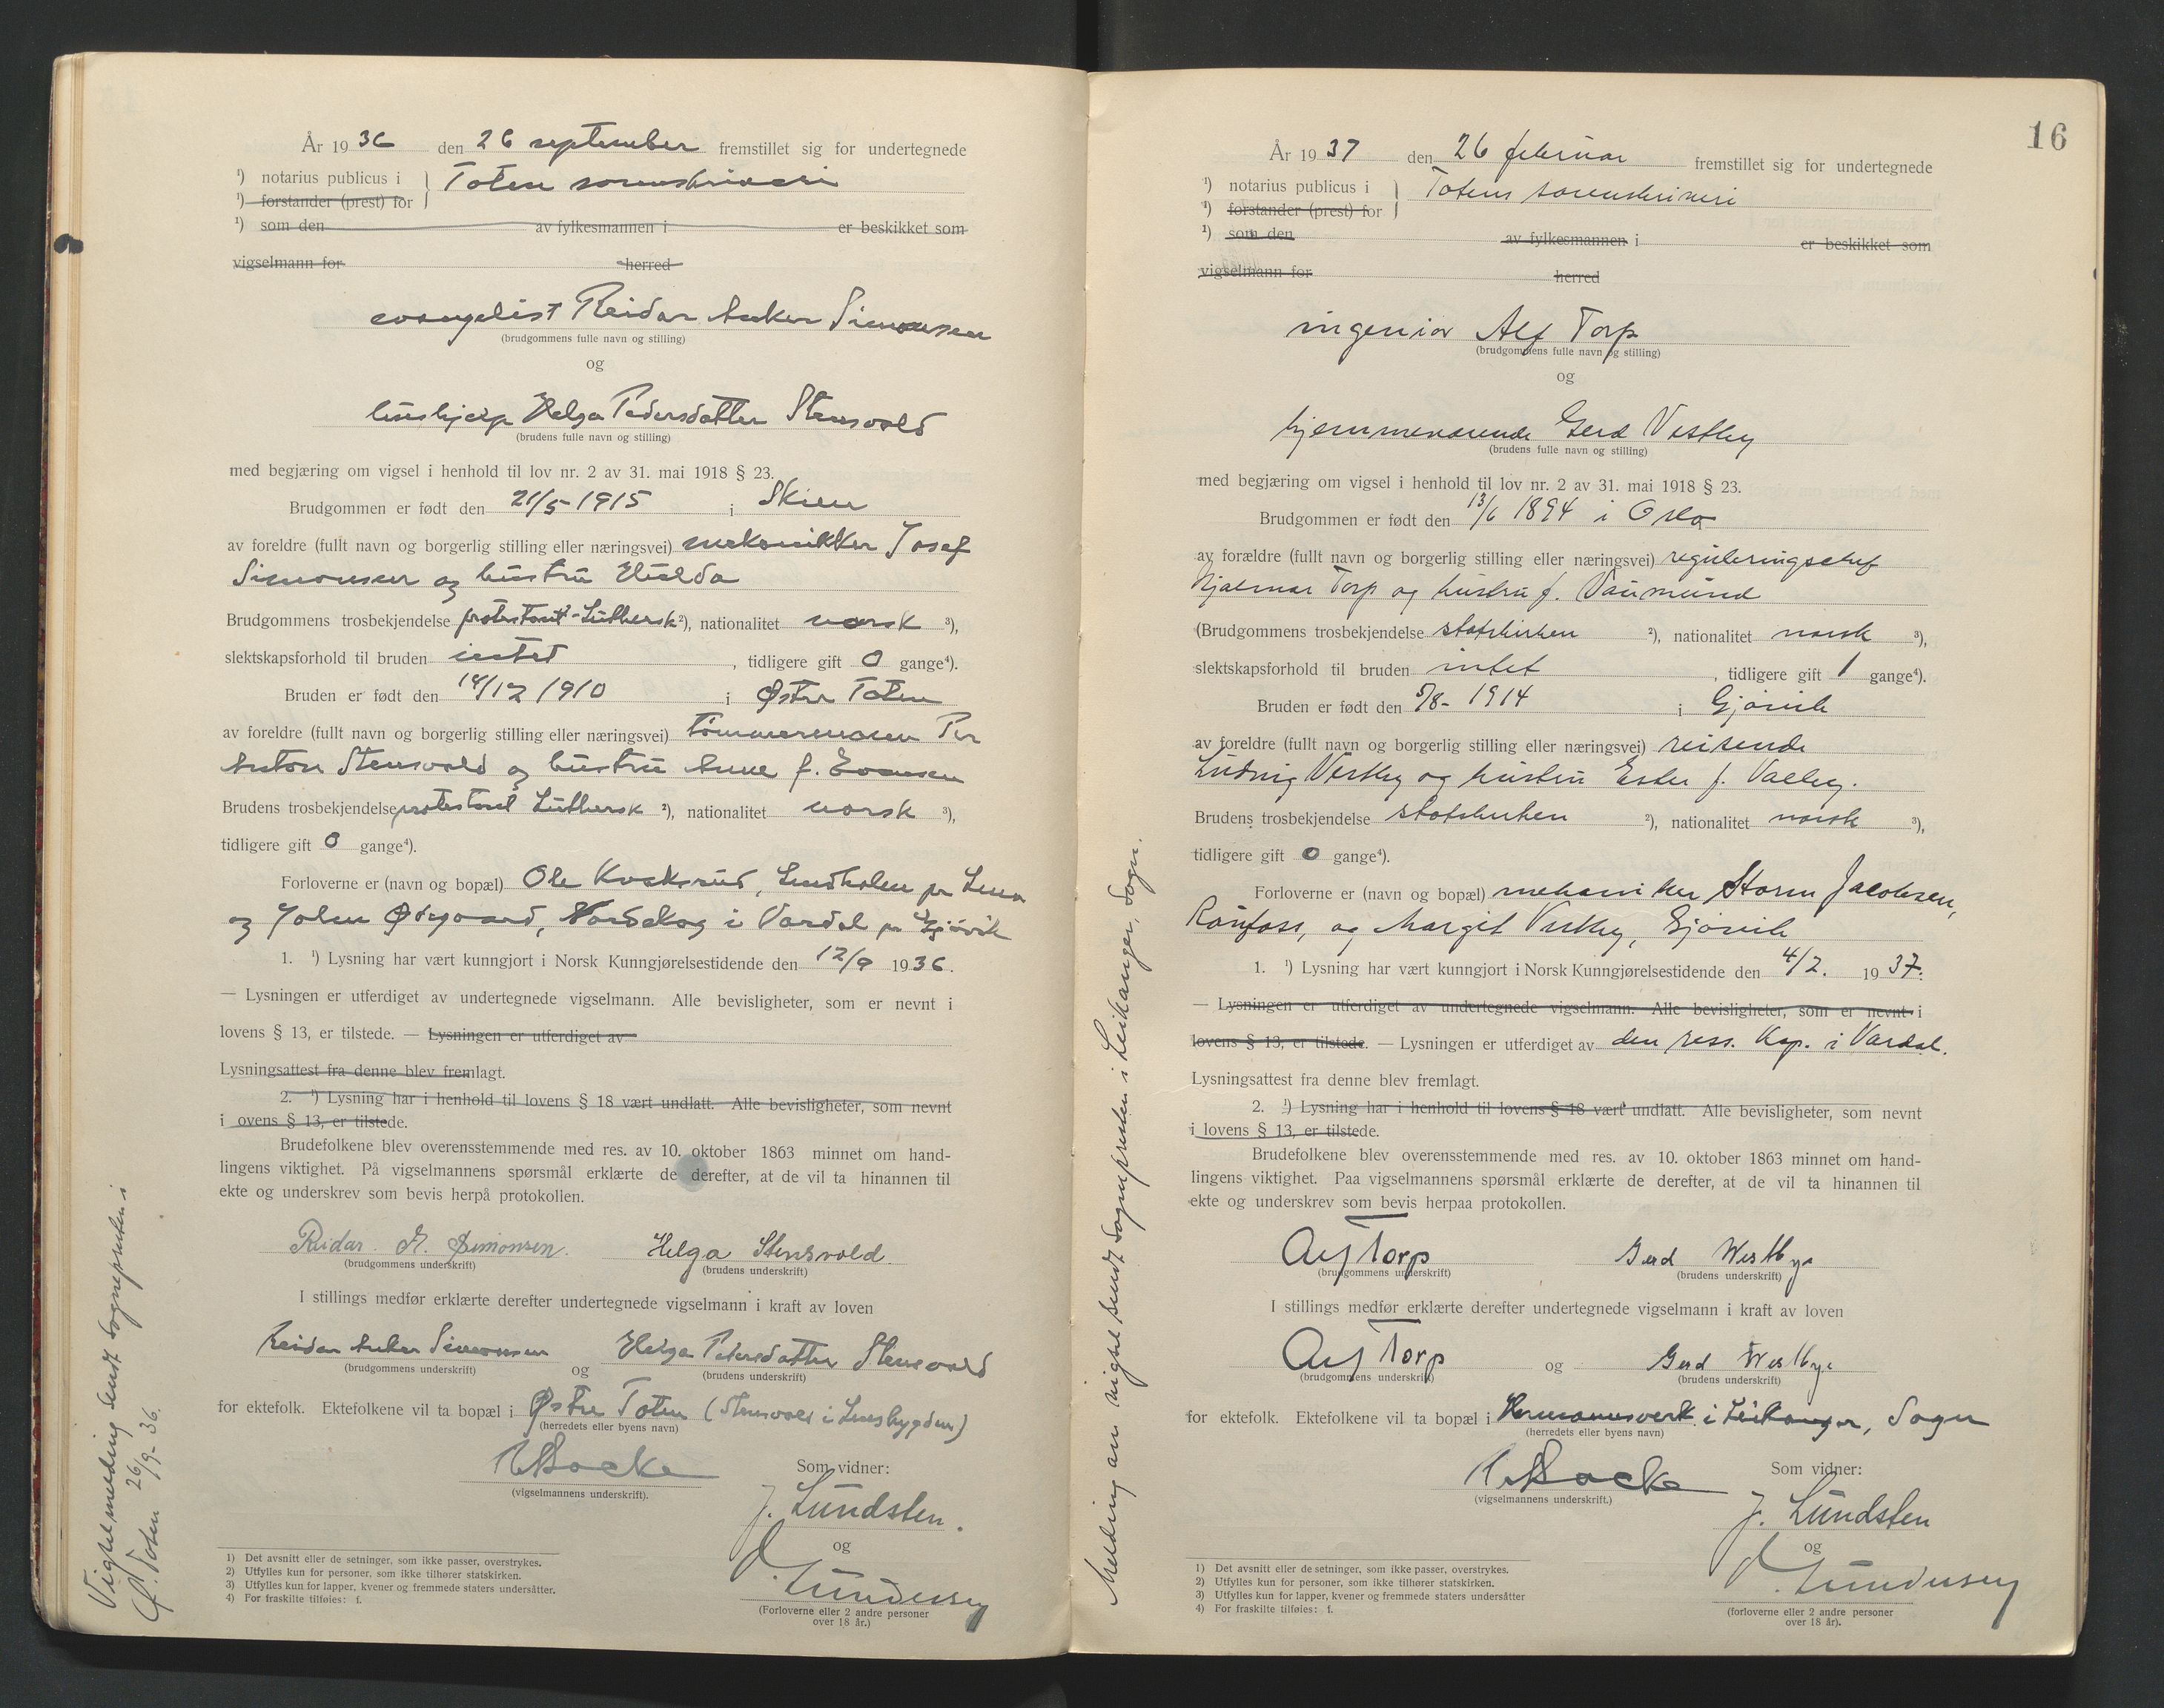 År 1936 den 26 september fremstillet sig for undertegnede
¹) notarius publicus i } Toten sorenskriveri
¹) forstander (prest) for
¹) som den av fylkesmannen i er beskikket som
vigselmann for herred
evangelist Reidar Anker Simonsen
(brudgommens fulle navn og stilling)
og
hushjelp Helga Pedersdatter Stensvold
(brudens fulle navn og stilling)
med begjæring om vigsel i henhold til lov nr. 2 av 31. mai 1918 § 23.
Brudgommen er født den 21/5-1915 i Skien
av foreldre (fullt navn og borgerlig stilling eller næringsvei) mekanikker Josef
Simonsen og hustru Hulda
Brudgommens trosbekjendelse protestant-Luthersk ²), nationalitet norsk ³),
slektskapsforhold til bruden intet, tidligere gift 0 gange⁴).
Bruden er født den 14/12 1910 i Østre Toten
av foreldre (fullt navn og borgerlig stilling eller næringsvei) tømmermann Per
Anton Stensvold og hustru Anne f. Evensen
Brudens trosbekjendelse protestant Luthersk ²), nationalitet norsk ³),
tidligere gift 0 gange⁴).
Forloverne er (navn og bopæl) Ole Kvaksrud, Lundholen pr Lena
og Johan Ødegaard, Nordskog i Vardal pr Gjøvik
1. ¹) Lysning har vært kunngjort i Norsk Kunngjørelsestidende den 12/9 1936.
— Lysningen er utferdiget av undertegnede vigselmann. Alle bevisligheter, som er nevnt i
lovens § 13, er tilstede. — Lysningen er utferdiget av
Lysningsattest fra denne blev fremlagt.
2. ¹) Lysning har i henhold til lovens § 18 vært undlatt. Alle bevisligheter, som nevnt
i ovens § 13, er tilstede.
Brudefolkene blev overensstemmende med res. av 10. oktober 1863 minnet om hand-
lingens viktighet. På vigselmannens spørsmål erklærte de derefter, at de vil ta hinannen til
ekte og underskrev som bevis herpå protokollen.
Reidar A. Simonsen. Helga Stensvold.
(brudgommens underskrift) (brudens underskrift)
I stillings medfør erklærte derefter undertegnede vigselmann i kraft av loven
Reidar Anker Simonsen og Helga Pedersdatter Stensvold
(brudgommens underskrift) (brudens underskrift)
for ektefolk. Ektefolkene vil ta bopæl i Østre Toten (Stensvold i Lensbygden)
(herredets eller byens navn)
(vigselmannens underskrift).
Som vidner:
J. Lundsten.
og
(Forloverne eller 2 andre personer
over 18 år.)
1) Det avsnitt eller de setninger, som ikke passer, overstrykes.
2) Utfylles kun for personer, som ikke tilhører statskirken.
3) Utfylles kun for lapper, kvener og fremmede staters undersåtter.
4) For fraskilte tilføies: f.
Vigselmelding sendt sognepresten i
Ø. Toten 26/9-36.
16
År 1937 den 26 februar fremstillet sig for undertegnede
¹) notarius publicus i } Totens sorenskriveri
¹) forstander (prest) for
¹) som den av fylkesmannen i er beskikket som
vigselmann for herred
ingeniør Alf Torp
(brudgommens fulle navn og stilling)
og
hjemmeværende Gerd Vestby
(brudens fulle navn og stilling)
med begjæring om vigsel i henhold til lov nr. 2 av 31. mai 1918 § 23.
Brudgommen er født den 13/6 1894 i Oslo
av forældre (fullt navn og borgerlig stilling eller næringsvei) reguleringschef
Hjalmar Torp og hustru f. Vaumund
(Brudgommens trosbekjendelse statskirken ²), nationalitet norsk ³),
slektskapsforhold til bruden intet, tidligere gift 1 gange⁴).
Bruden er født den 5/8- 1914 i Gjøvik
av foreldre (fullt navn og borgerlig stilling eller næringsvei) reisende
Ludvig Vestby og hustru Ester f. Valby.
Brudens trosbekjendelse statskirken ²), nationalitet norsk ³),
tidligere gift 0 gange⁴).
Forloverne er (navn og bopæl) mekaniker Storm Jacobsen,
Raufoss, og Margit Vestby, Gjøvik
1. ¹) Lysning har vært kunngjort i Norsk Kunngjørelsestidende den 4/2. 1937.
— Lysningen er utferdiget av undertegnede vigselmann. Alle bevisligheter, som er nevnt i
lovens § 13, er tilstede. — Lysningen er utferdiget av den ress. Kap. i Vardal.
Lysningsattest fra denne blev fremlagt.
2. ¹) Lysning har i henhold til lovens § 18 vært undlatt. Alle bevisligheter, som nevnt
i lovens § 13, er tilstede.
Brudefolkene blev overensstemmende med res. av 10. oktober 1863 minnet om hand-
lingens viktighet. Paa vigselmannens spørsmål erklærte de derefter, at de vil ta hinannen til
ekte og underskrev som bevis herpaa protokollen.
Alf Torp Gerd Westbye
(brudgommens underskrift) (brudens underskrift)
I stillings medfør erklærte derefter undertegnede vigselmann i kraft av loven
Alf Torp og Gerd Westbye
(brudgommens underskrift) (brudens underskrift)
for ektefolk. Ektefolkene vil ta bopæl i Hermansverk i Leikanger, Sogn
(herredets eller byens navn)
(vigselmannens underskrift.)
Som vidner:
J. Lundsten
og
(forloverne eller 2 andre personer
over 18 år).
1) Det avsnitt eller de setninger, som ikke passer, overstrykes.
2) Utfylles kun for personer, som ikke tilhører statskirken.
3) Utfylles kun for lapper, kvener og fremmede staters undersåtter
4) For fraskilte tilføies: f.
Melding om vigsel sendt Sognepresten i Leikanger, Sogn.